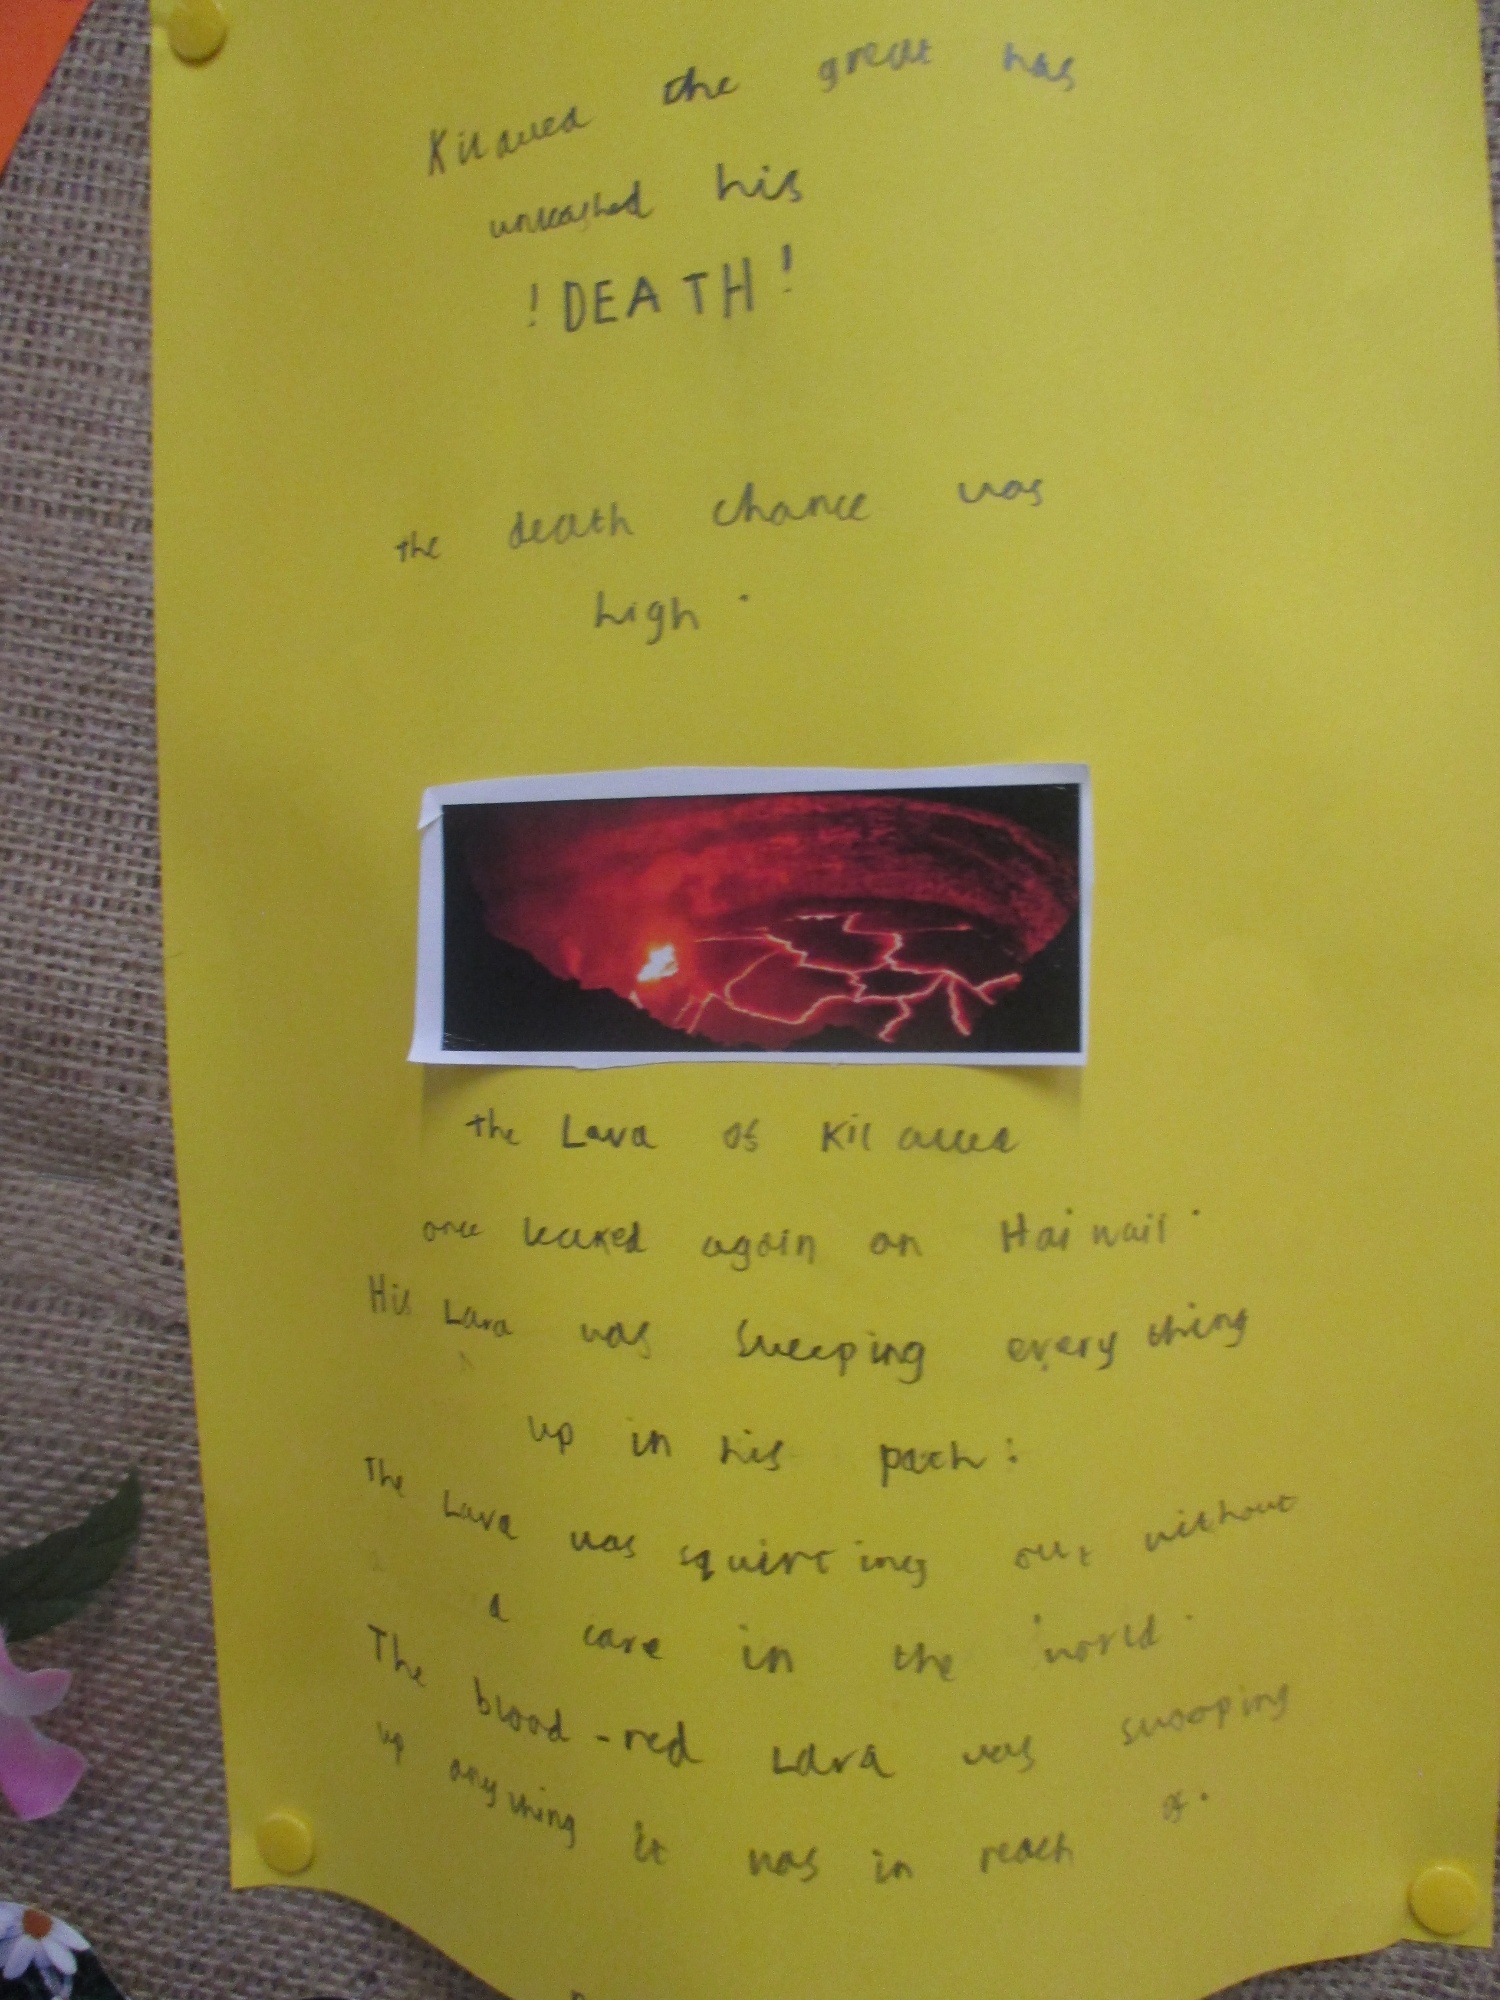 Kilauea the great has
unleashed his
! DEATH !
the death chance was
high .
the Lava of Kilauea
once leaked again on Hai waii .
His Lava was Sweeping every thing
up in his path :
The Lava was squirting out without
a care in the world .
The blood-red Lava was swooping
up anything it was in reach of .